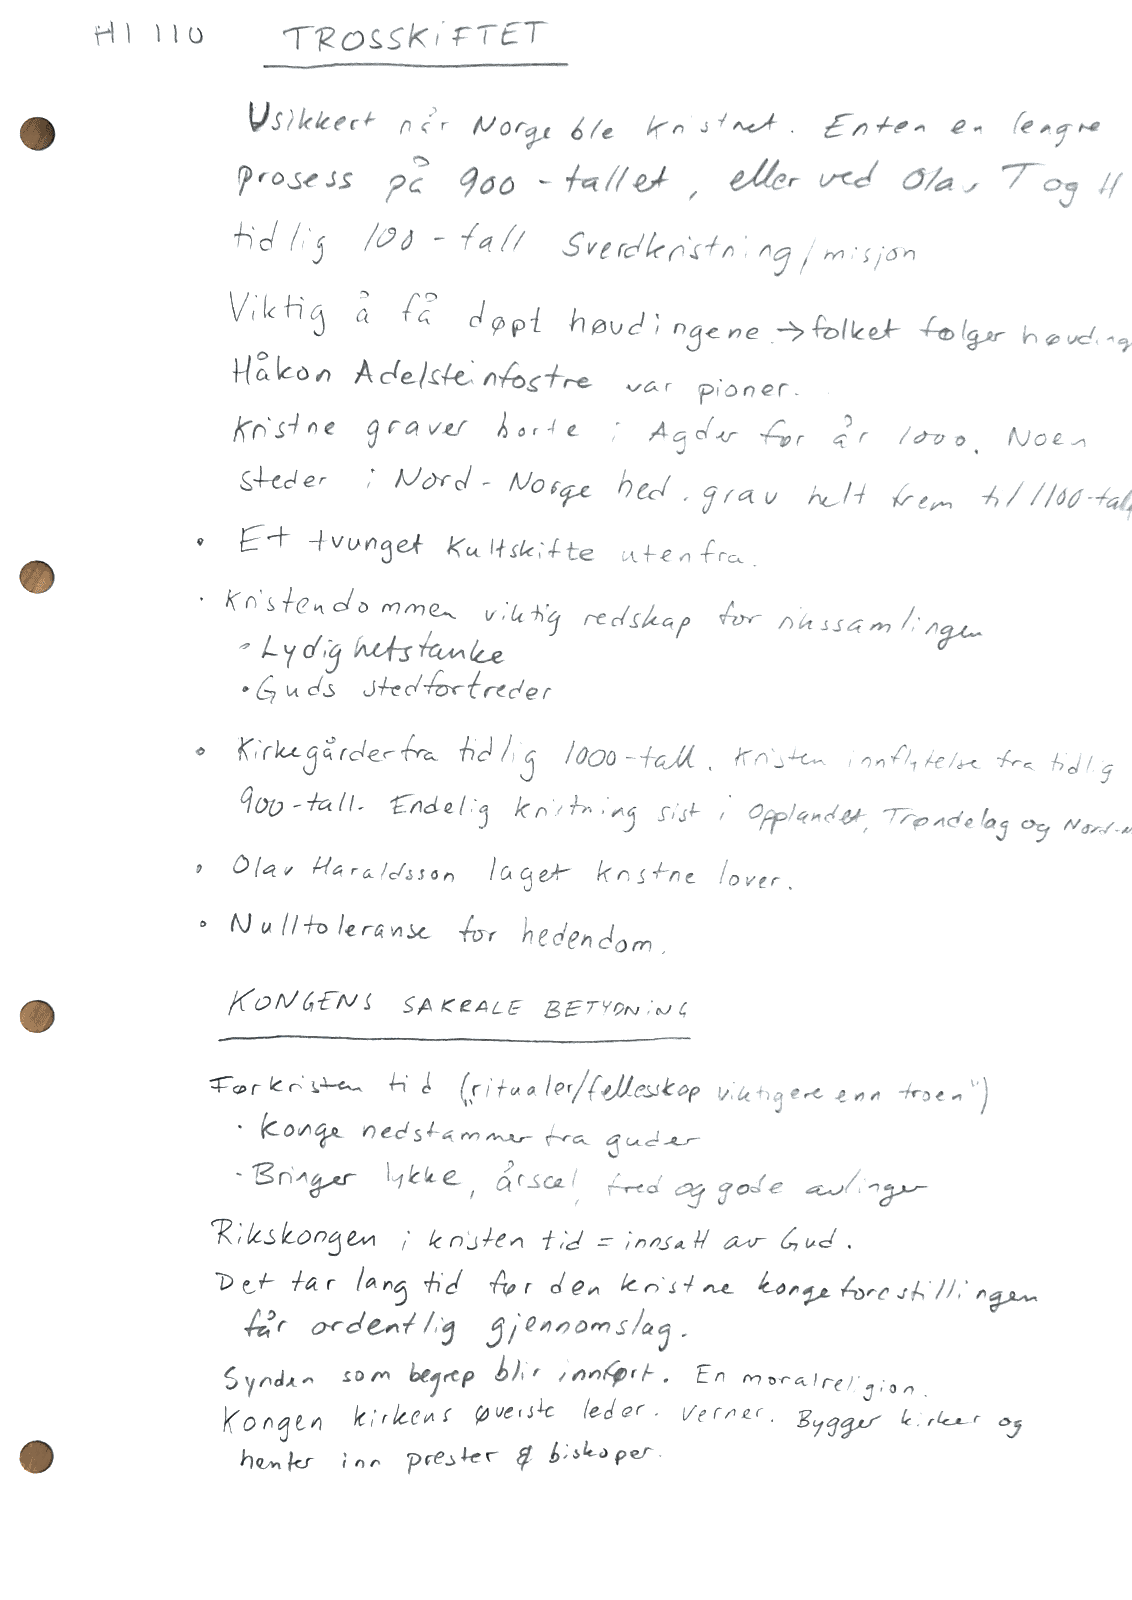 HI 110 TROSSKIFTET
Usikkert når Norge ble kristnet. Enten en lengre
prosess på 900-tallet, eller ved Olav T og H
tidlig 100-tall Sverdkristning/misjon
Viktig å få døpt høvdingene → folket følger høvding
Håkon Adelsteinfostre var pioner.
Kristne graver borte i Agder før år 1000. Noen
steder i Nord-Norge hed. grav helt frem til 1100-tall
• Et tvunget kultskifte utenfra.
• Kristendommen viktig redskap for rikssamlingen
• Lydighetstanke
• Guds stedfortreder
• Kirkegårder fra tidlig 1000-tall. Kristen innflytelse fra tidlig
900-tall. Endelig kristning sist i Opplandet, Trøndelag og Nord-N
• Olav Haraldsson laget kristne lover.
• Nulltoleranse for hedendom.
KONGENS SAKRALE BETYDNING
Førkristen tid („ritualer/fellesskap viktigere enn troen")
• Konge nedstammer fra guder
- Bringer lykke, årsæl, fred og gode avlinger
Rikskongen i kristen tid = innsatt av Gud.
Det tar lang tid før den kristne kongeforestillingen
får ordentlig gjennomslag.
Synden som begrep blir innført. En moralreligion.
Kongen kirkens øverste leder. Verner. Bygger kirker og
henter inn prester & biskoper.